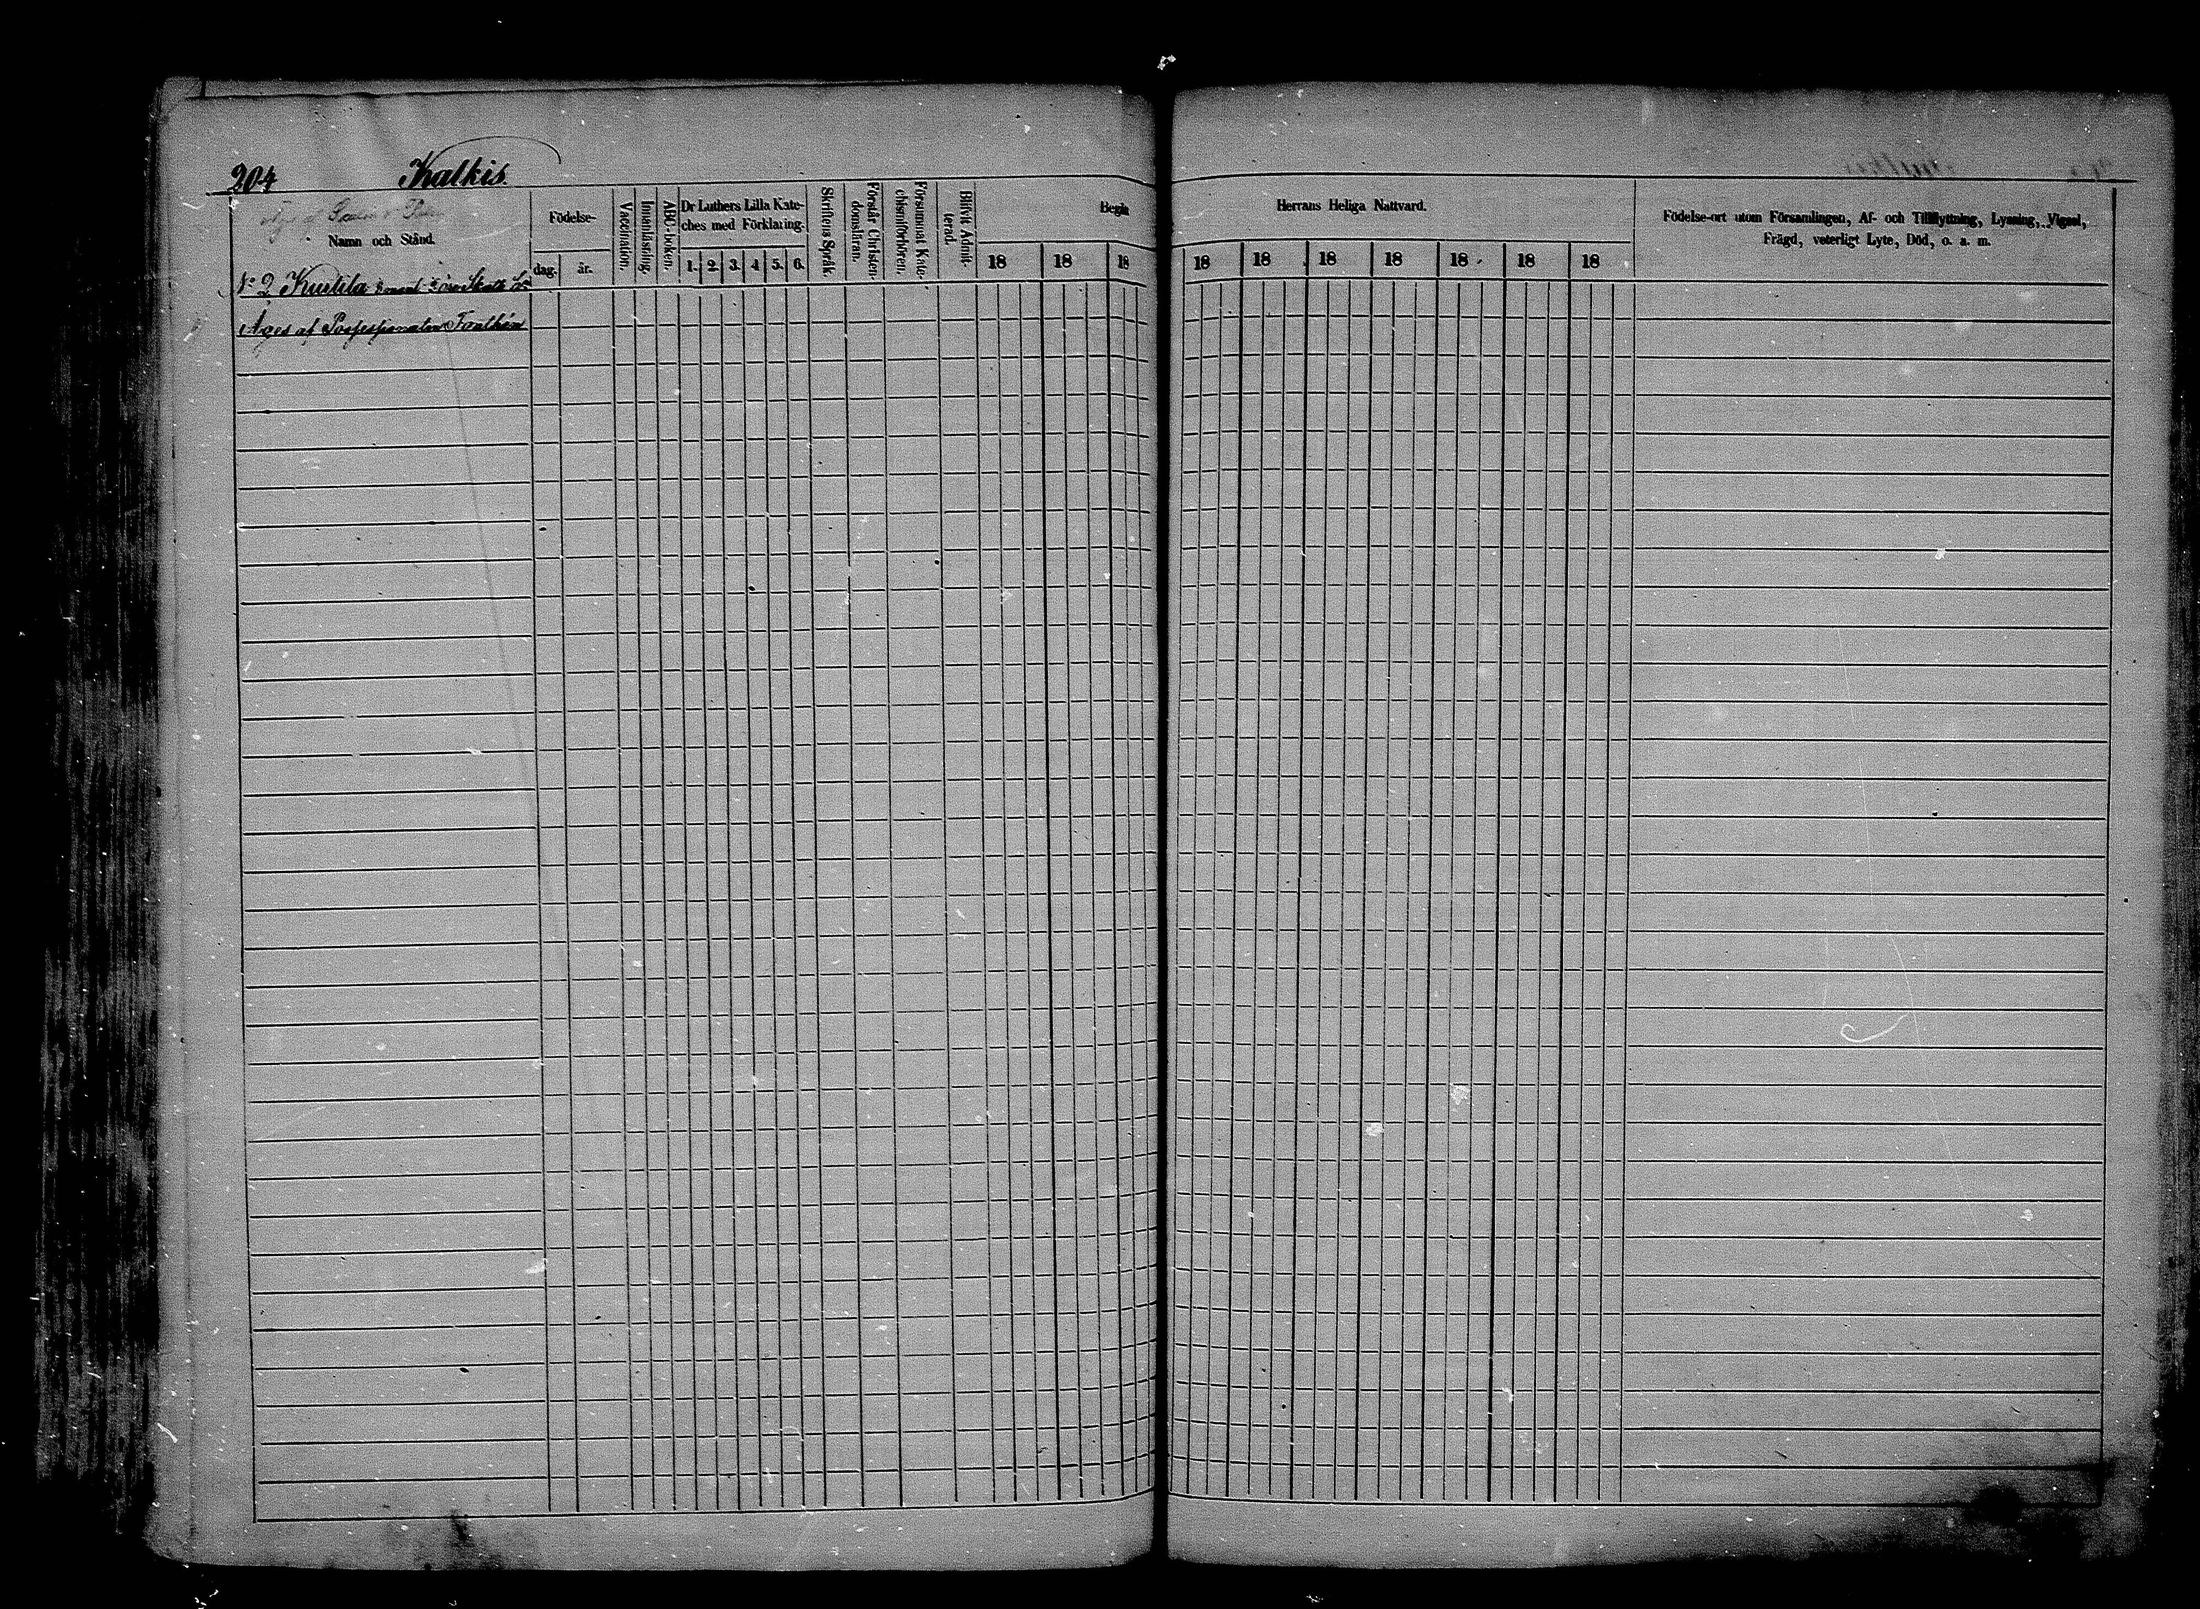 204 Kalkis.
Namn och Stånd.
Födelse-
dag. år.
Vaccination.
Innanläsning.
ABC-boken.
Dr Luthers Lilla Kate-
ches med Förklaring.
1. 2. 3. 4 5. 6.
Skriftens Språk.
Förstår Christen-
domsläran.
Försummat Kate-
chismiförhören.
Blifvit Admit-
terad.
Begår
18 18 18
Herrans Heliga Nattvard.
18 18 18 18 18 18 18
Födelse-ort utom Församlingen, Af- och Tillflyttning, Lysning, Vigsel,
Frägd, veterligt Lyte, Död, o. a. m.
N:o 2 Knutila
Äges af Possessionaten